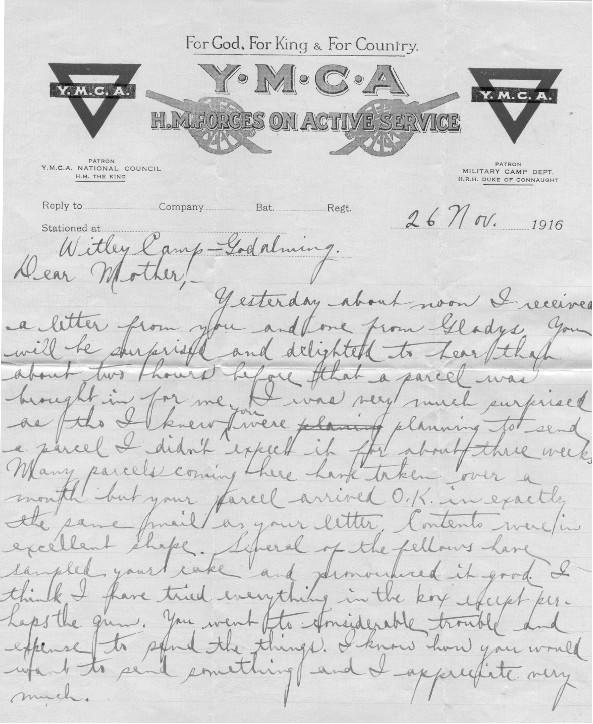 For God, For King & For Country.
Y·M·C·A
H.M. FORCES ON ACTIVE SERVICE
Y.M.C.A.
Y.M.C.A.
PATRON
Y.M.C.A. NATIONAL COUNCIL
H.M. THE KING
PATRON
MILITARY CAMP DEPT.
H.R.H. DUKE OF CONNAUGHT
Reply to Company Bat. Regt. 26 Nov. 1916
Stationed at
Witley Camp - Godalming.
Dear Mother,-
Yesterday about noon I received
a letter from you and one from Gladys. You
will be surprised and delighted to hear that
about two hours before that a parcel was
brought in for me. I was very much surprised
as tho I knew you were planing planning to send
a parcel I didn't expect it for about three weeks
Many parcels coming here have taken over a
month but your parcel arrived O.K. in exactly
the same mail as your letter. Contents were in
excellent shape. Several of the fellows have
sampled your cake and pronounced it good. I
think I have tried everything in the box except per-
haps the gum. You went to considerable trouble and
expense to send the things. I know how you would
want to send something and I appreciate very
much.